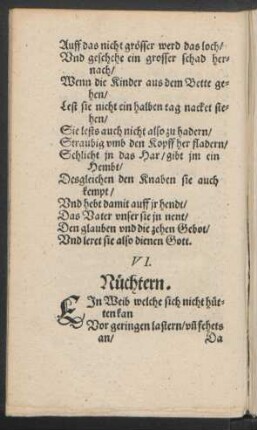 Auff das nicht grösser werd das loch/
Vnd geschehe ein grosser schad her-
nach/
Wenn die Kinder aus dem Bette ge-
hen/
Lest sie nicht ein halben tag nacket ste-
hen/
Sie lests auch nicht also zu hadern/
Straubig vmb den Kopff her fladern/
Schlicht jn das Har/gibt jm ein
Hembt/
Desgleichen den Knaben sie auch
kempt/
Vnd hebt damit auff jr hendt/
Das Vater vnser sie jn nent/
Den glauben vnd die zehen Gebot/
Vnd leret sie also dienen Gott.
VI.
Nüchtern.
EIn Weib welche sich nicht hüt-
ten kan
Vor geringen lastern/vñ sehets
an/ Da